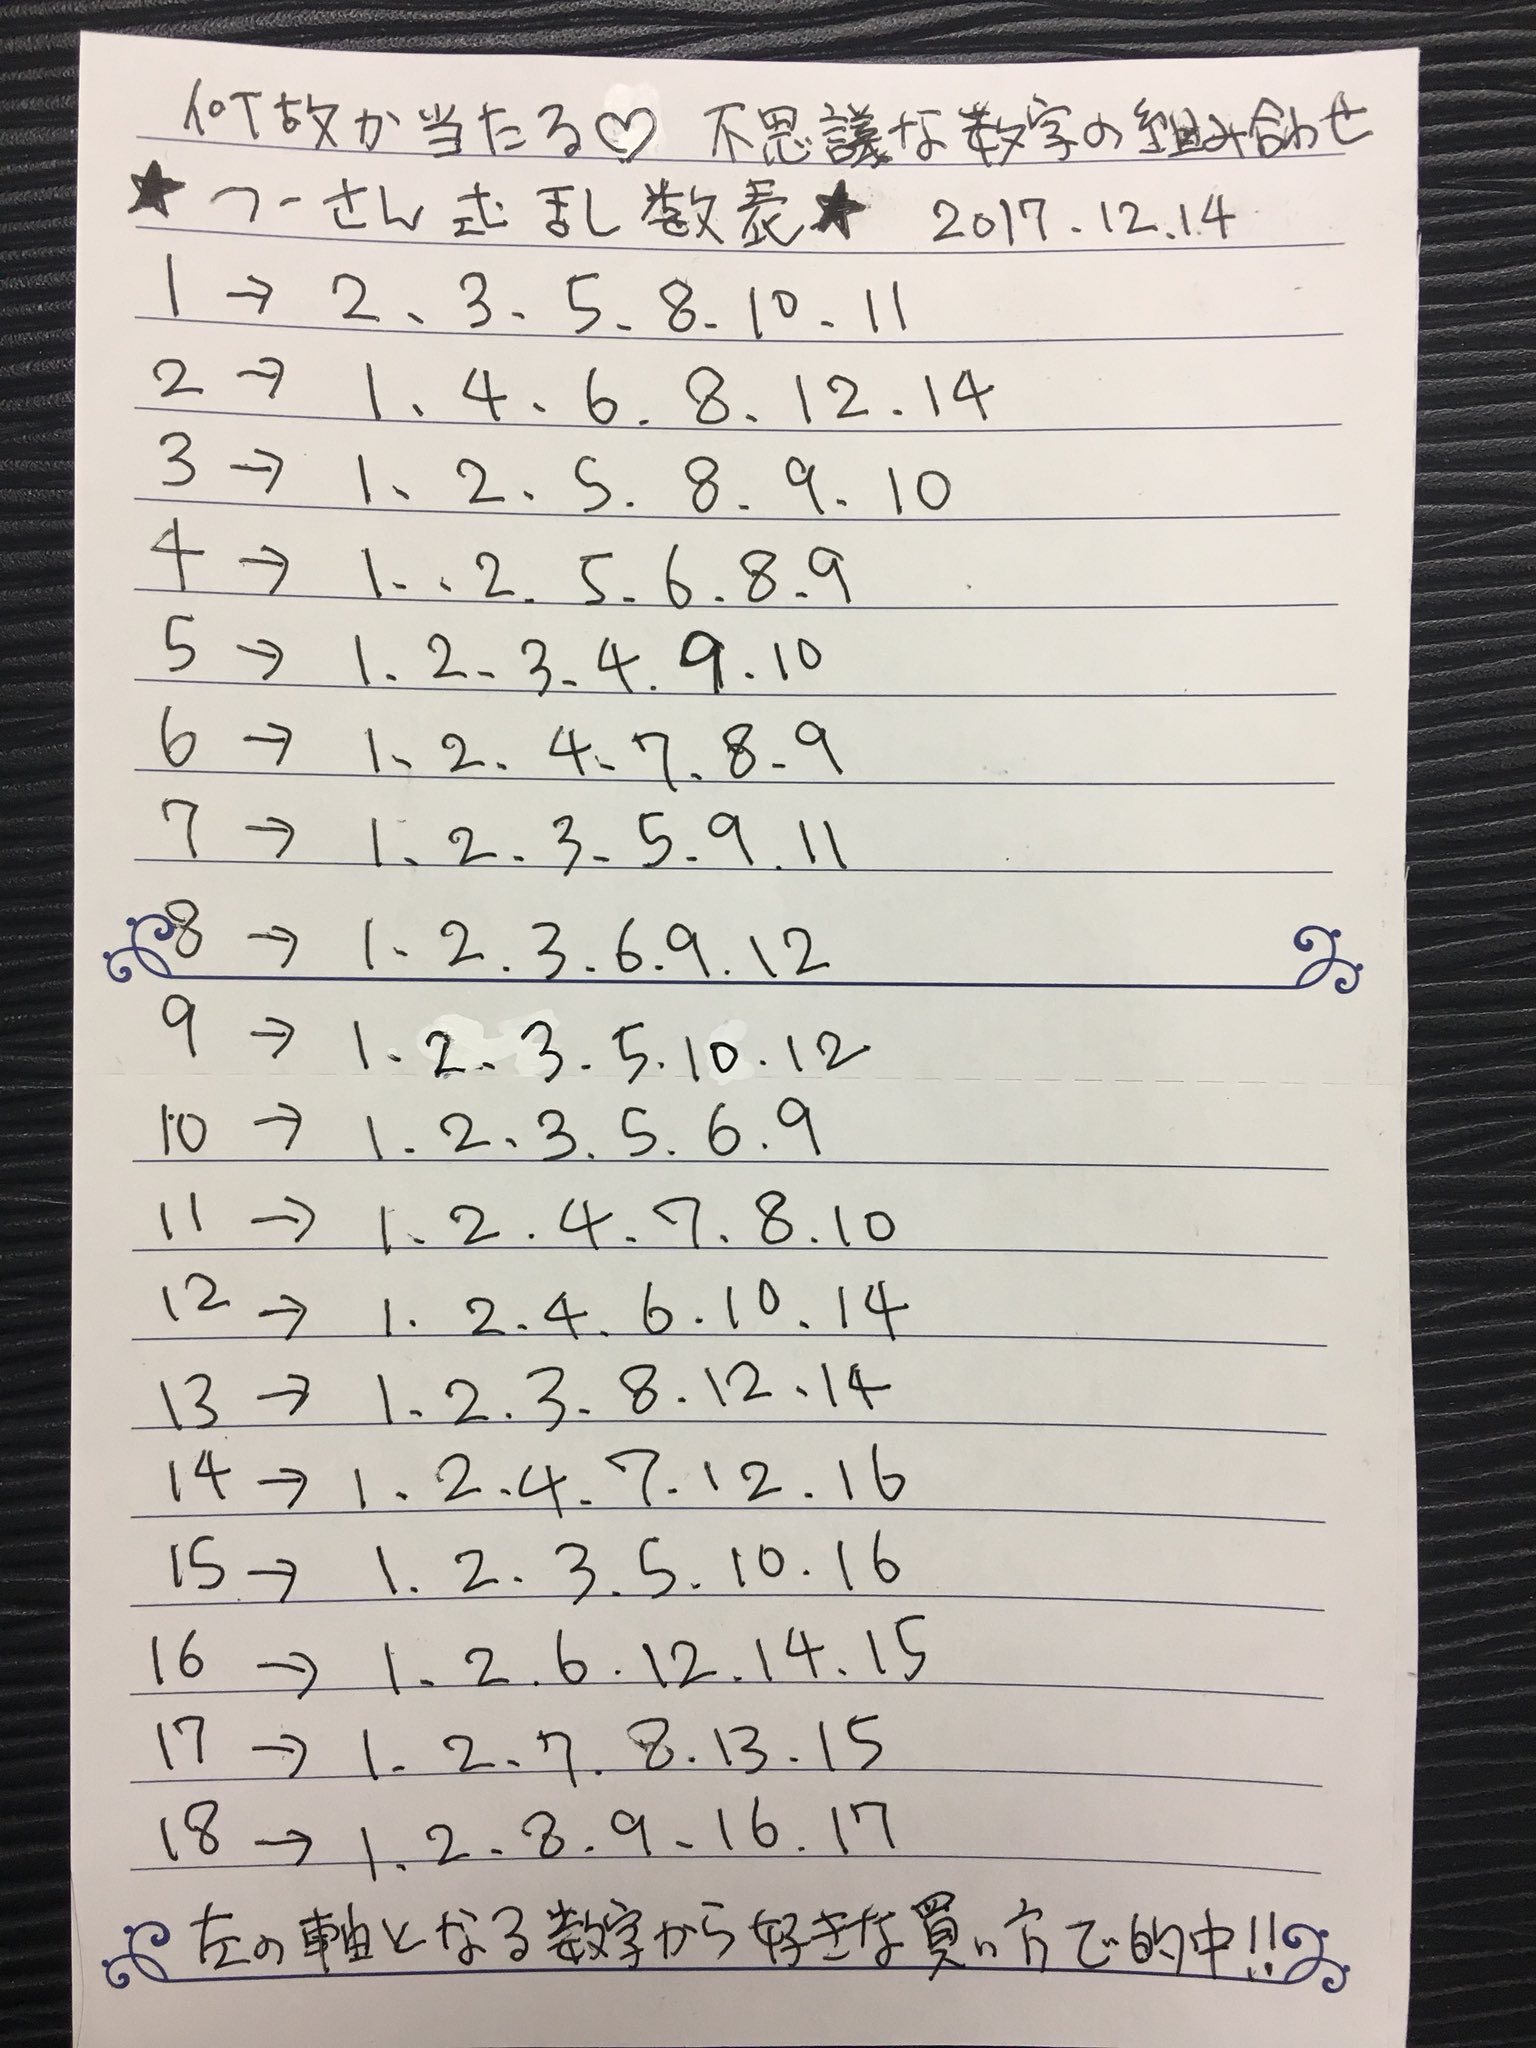 何故か当たる♡ 不思議な数字の組み合わせ
★つーさん式乱数表★ 2017.12.14
1→2、3、5、8、10、11
2→1、4、6、8、12、14
3→1、2、5、8、9、10
4→1、2、5、6、8、9
5→1、2、3、4、9、10
6→1、2、4、7、8、9
7→1、2、3、5、9、11
8→1、2、3、6、9、12
9→1、2、3、5、10、12
10→1、2、3、5、6、9
11→1、2、4、7、8、10
12→1、2、4、6、10、14
13→1、2、3、8、12、14
14→1、2、4、7、12、16
15→1、2、3、5、10、16
16→1、2、6、12、14、15
17→1、2、7、8、13、15
18→1、2、8、9、16、17
左の軸となる数字から好きな買い方で的中!!